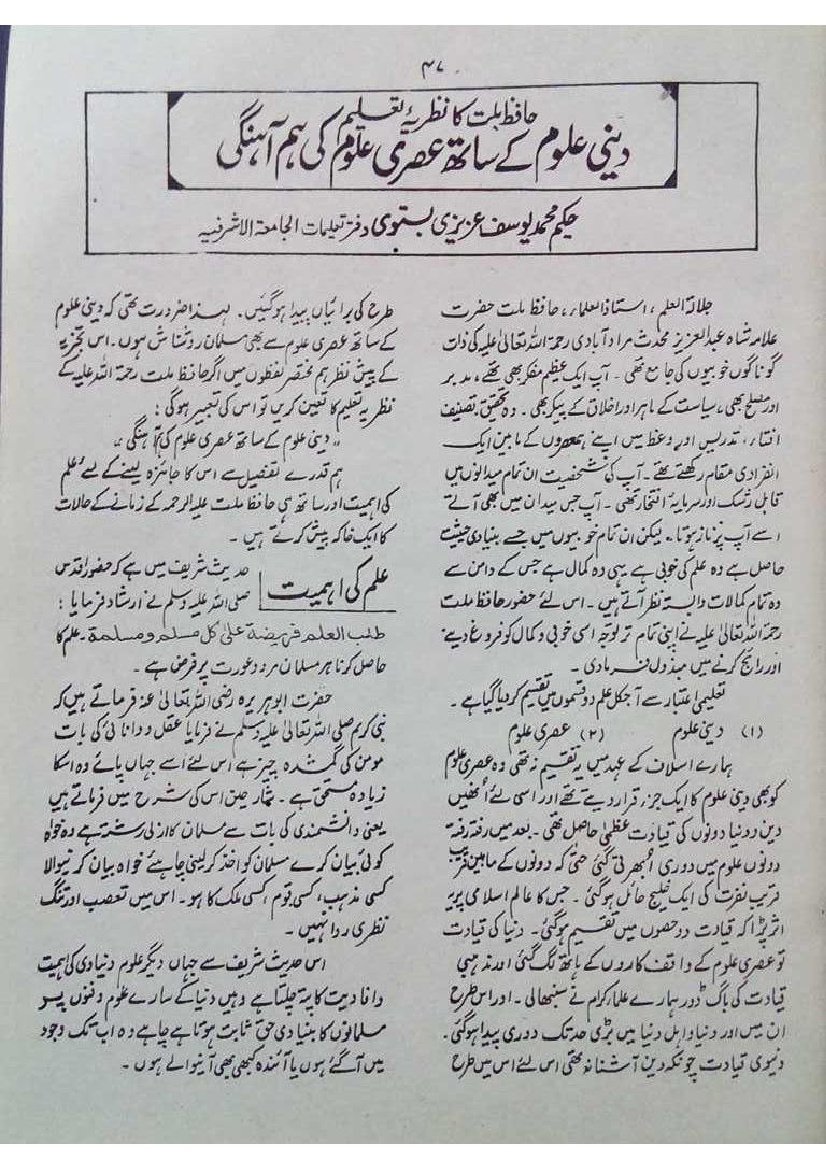 ۴۷
حافظ ملت کا نظریۂ تعلیم
دینی علوم کے ساتھ عصری علوم کی ہم آہنگی
حکیم محمد یوسف عزیزی بستوی دفتر تعلیمات الجامعۃ الاشرفیہ
جلالۃ العلم، استاذ العلماء، حافظ ملت حضرت
علامہ شاہ عبد العزیز محدث مراد آبادی رحمۃ اللہ تعالیٰ علیہ کی ذات
گوناگوں خوبیوں کی جامع تھی۔ آپ ایک عظیم مفکر بھی تھے، مدبر
اور مصلح بھی، سیاست کے ماہر اور اخلاق کے پیکر بھی۔ وہ تحقیق تصنیف
افتاء، تدریس اور وعظ میں اپنے ہمعصروں کے مابین ایک
انفرادی مقام رکھتے تھے۔ آپ کی شخصیت ان تمام میدانوں میں
قابل رشک اور سرمایۂ افتخار تھی۔ آپ جس میدان میں بھی آتے
اسے آپ پر ناز ہوتا۔ لیکن ان تمام خوبیوں میں جسے بنیادی حیثیت
حاصل ہے وہ علم کی خوبی ہے یہی وہ کمال ہے جس کے دامن سے
وہ تمام کمالات وابستہ نظر آتے ہیں۔ اس لئے حضور حافظ ملت
رحمۃ اللہ تعالیٰ علیہ نے اپنی تمام تر توجہ اسی خوبی و کمال کو فروغ دینے
اور رائج کرنے میں مبذول فرمادی۔
تعلیمی اعتبار سے آجکل علم دو قسموں میں تقسیم کر دیا گیا ہے۔
(۱) دینی علوم (۲) عصری علوم
ہمارے اسلاف کے عہد میں یہ تقسیم نہ تھی وہ عصری علوم
کو بھی دینی علوم کا ایک جزء قرار دیتے تھے اور اسی لئے اُنھیں
دین و دنیا دونوں کی قیادت عظمیٰ حاصل تھی۔ بعد میں رفتہ رفتہ
دونوں علوم میں دوری اُبھرتی گئی حتیٰ کہ دونوں کے مابین قریب
قریب نفرت کی ایک خلیج حائل ہو گئی۔ جس کا عالم اسلامی پر یہ
اثر پڑا کہ قیادت دو حصوں میں تقسیم ہو گئی۔ دنیا کی قیادت
تو عصری علوم کے واقف کاروں کے ہاتھ لگ گئی اور مذہبی
قیادت کی باگ ڈور ہمارے علماء کرام نے سنبھالی۔ اور اس طرح
ان میں اور دنیا و اہل دنیا میں بڑی حد تک دوری پیدا ہو گئی۔
دنیوی قیادت چونکہ دین آشنا نہ تھی اس لئے اس میں طرح
طرح کی برائیاں پیدا ہو گئیں۔ لہٰذا ضرورت تھی کہ دینی علوم
کے ساتھ عصری علوم سے بھی مسلمان روشناس ہوں۔ اس تجزیہ
کے پیش نظر ہم مختصر لفظوں میں اگر حافظ ملت رحمۃ اللہ علیہ کے
نظریہ تعلیم کا تعین کریں تو اس کی تعبیر ہوگی؛
”دینی علوم کے ساتھ عصری علوم کی ہم آہنگی“
ہم قدرے تفصیل سے اس کا جائزہ لینے کے لئے علم
کی اہمیت اور ساتھ ہی حافظ ملت علیہ الرحمہ کے زمانے کے حالات
کا ایک خاکہ پیش کرتے ہیں۔
علم کی اہمیت
حدیث شریف میں ہے کہ حضور اقدس
صلی اللہ علیہ وسلم نے ارشاد فرمایا؛
طلب العلم فریضۃ علیٰ کل مسلم ومسلمۃ۔ علم کا
حاصل کرنا ہر مسلمان مرد و عورت پر فرض ہے۔
حضرت ابو ہریرہ رضی اللہ تعالیٰ عنہ فرماتے ہیں کہ
نبی کریم صلی اللہ تعالیٰ علیہ وسلم نے فرمایا عقل و دانائی کی بات
مومن کی گمشدہ چیز ہے اس لئے اسے جہاں پائے وہ اسکا
زیادہ مستحق ہے۔ شارحین اس کی شرح میں فرماتے ہیں
یعنی دانشمندی کی بات سے مسلمان کا ازلی رشتہ ہے وہ خواہ
کوئی بیان کرے مسلمان کو اخذ کر لینی چاہئے خواہ بیان کرنیوالا
کسی مذہب، کسی قوم، کسی ملک کا ہو۔ اس میں تعصب اور تنگ
نظری روا نہیں۔
اس حدیث شریف سے جہاں دیگر علوم دنیاوی کی اہمیت
و افادیت کا پتہ چلتا ہے وہیں دنیا کے سارے علوم و فنون پر
مسلمانوں کا بنیادی حق ثابت ہوتا ہے چاہے وہ اب تک وجود
میں آگئے ہوں یا آئندہ کبھی بھی آنیوالے ہوں۔